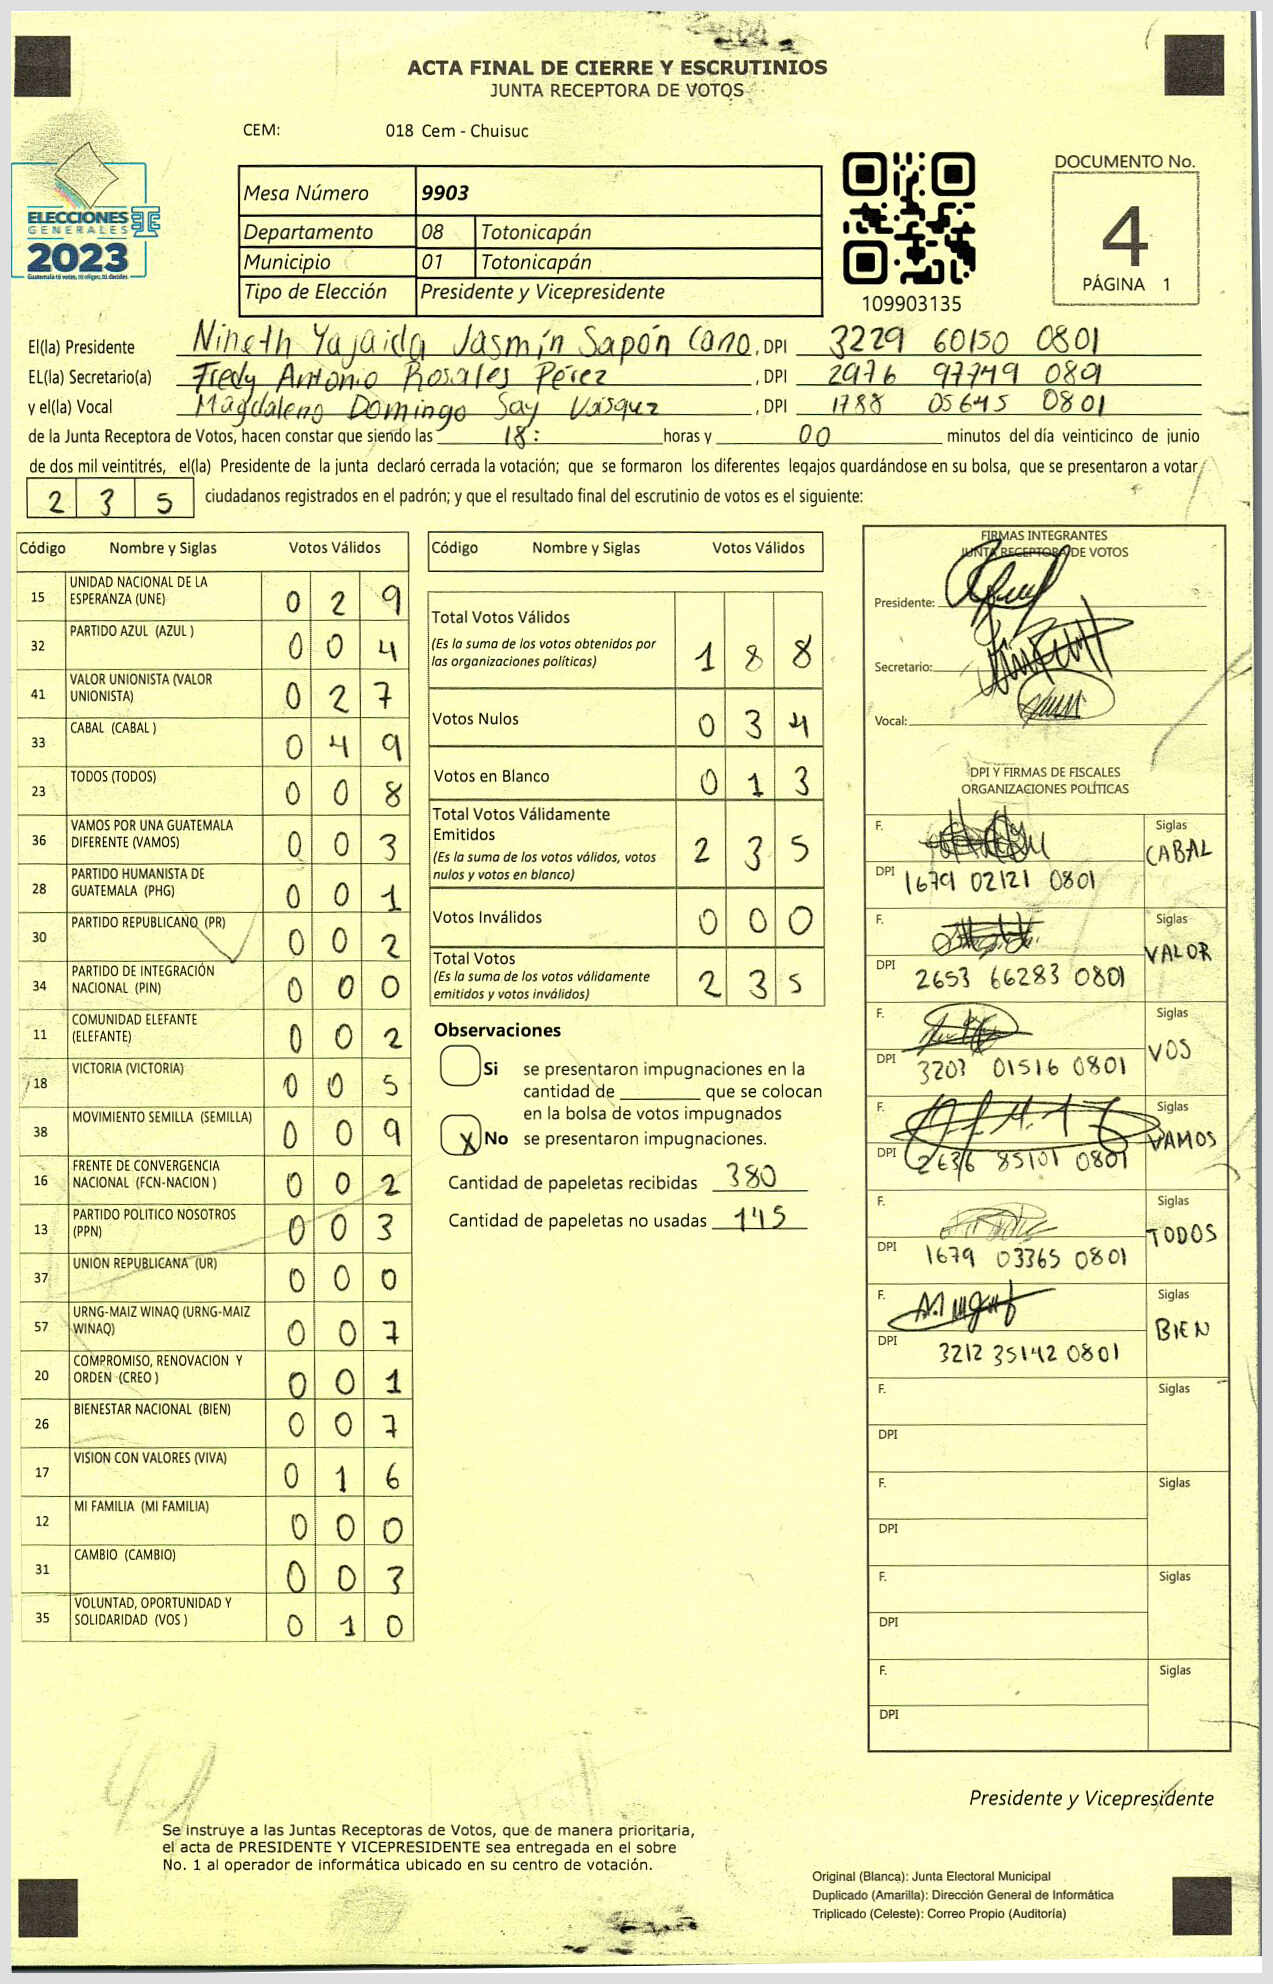 ACTA FINAL DE CIERRE Y ESCRUTINIOS
JUNTA RECEPTORA DE VOTOS
CEM: 018 Cem - Chuisuc
ELECCIONES
GENERALES
2023
Guatemala tú votas, tú eliges, tú decides
Mesa Número 9903
Departamento 08 Totonicapán
Municipio 01 Totonicapán
Tipo de Elección Presidente y Vicepresidente
109903135
DOCUMENTO No.
4
PÁGINA 1
El(la) Presidente Nineth Yajaida Jasmín Sapón Cano, DPI 3229 60150 0801
EL(la) Secretario(a) Fredy Antonio Rosales Pérez, DPI 2976 97749 0801
y el(la) Vocal Magdaleno Domingo Say Vásquez, DPI 1788 05645 0801
de la Junta Receptora de Votos, hacen constar que siendo las 18: horas y 00 minutos del día veinticinco de junio
de dos mil veintitrés, el(la) Presidente de la junta declaró cerrada la votación; que se formaron los diferentes legajos guardándose en su bolsa, que se presentaron a votar
2 3 5 ciudadanos registrados en el padrón; y que el resultado final del escrutinio de votos es el siguiente:
Código Nombre y Siglas Votos Válidos
15 UNIDAD NACIONAL DE LA ESPERANZA (UNE) 0 2 9
32 PARTIDO AZUL (AZUL ) 0 0 4
41 VALOR UNIONISTA (VALOR UNIONISTA) 0 2 7
33 CABAL (CABAL ) 0 4 9
23 TODOS (TODOS) 0 0 8
36 VAMOS POR UNA GUATEMALA DIFERENTE (VAMOS) 0 0 3
28 PARTIDO HUMANISTA DE GUATEMALA (PHG) 0 0 1
30 PARTIDO REPUBLICANO (PR) 0 0 2
34 PARTIDO DE INTEGRACIÓN NACIONAL (PIN) 0 0 0
11 COMUNIDAD ELEFANTE (ELEFANTE) 0 0 2
18 VICTORIA (VICTORIA) 0 0 5
38 MOVIMIENTO SEMILLA (SEMILLA) 0 0 9
16 FRENTE DE CONVERGENCIA NACIONAL (FCN-NACION ) 0 0 2
13 PARTIDO POLITICO NOSOTROS (PPN) 0 0 3
37 UNION REPUBLICANA (UR) 0 0 0
57 URNG-MAIZ WINAQ (URNG-MAIZ WINAQ) 0 0 7
20 COMPROMISO, RENOVACION Y ORDEN (CREO ) 0 0 1
26 BIENESTAR NACIONAL (BIEN) 0 0 7
17 VISION CON VALORES (VIVA) 0 1 6
12 MI FAMILIA (MI FAMILIA) 0 0 0
31 CAMBIO (CAMBIO) 0 0 3
35 VOLUNTAD, OPORTUNIDAD Y SOLIDARIDAD (VOS ) 0 1 0
Código Nombre y Siglas Votos Válidos
Total Votos Válidos
(Es la suma de los votos obtenidos por
las organizaciones políticas) 1 8 8
Votos Nulos 0 3 4
Votos en Blanco 0 1 3
Total Votos Válidamente
Emitidos
(Es la suma de los votos válidos, votos
nulos y votos en blanco) 2 3 5
Votos Inválidos 0 0 0
Total Votos
(Es la suma de los votos válidamente
emitidos y votos inválidos) 2 3 5
Observaciones
Si se presentaron impugnaciones en la
cantidad de ________ que se colocan
en la bolsa de votos impugnados
X No se presentaron impugnaciones.
Cantidad de papeletas recibidas 380
Cantidad de papeletas no usadas 145
FIRMAS INTEGRANTES
JUNTA RECEPTORA DE VOTOS
Presidente:
Secretario:
Vocal:
DPI Y FIRMAS DE FISCALES
ORGANIZACIONES POLÍTICAS
F. Siglas CABAL
DPI 1679 02121 0801
F. Siglas VALOR
DPI 2653 66283 0801
F. Siglas VOS
DPI 3203 01516 0801
F. Siglas VAMOS
DPI 2636 85101 0801
F. Siglas TODOS
DPI 1679 03365 0801
F. Siglas BIEN
DPI 3212 35142 0801
F. Siglas
DPI
F. Siglas
DPI
F. Siglas
DPI
F. Siglas
DPI
Presidente y Vicepresidente
Se instruye a las Juntas Receptoras de Votos, que de manera prioritaria,
el acta de PRESIDENTE Y VICEPRESIDENTE sea entregada en el sobre
No. 1 al operador de informática ubicado en su centro de votación.
Original (Blanca): Junta Electoral Municipal
Duplicado (Amarilla): Dirección General de Informática
Triplicado (Celeste): Correo Propio (Auditoría)